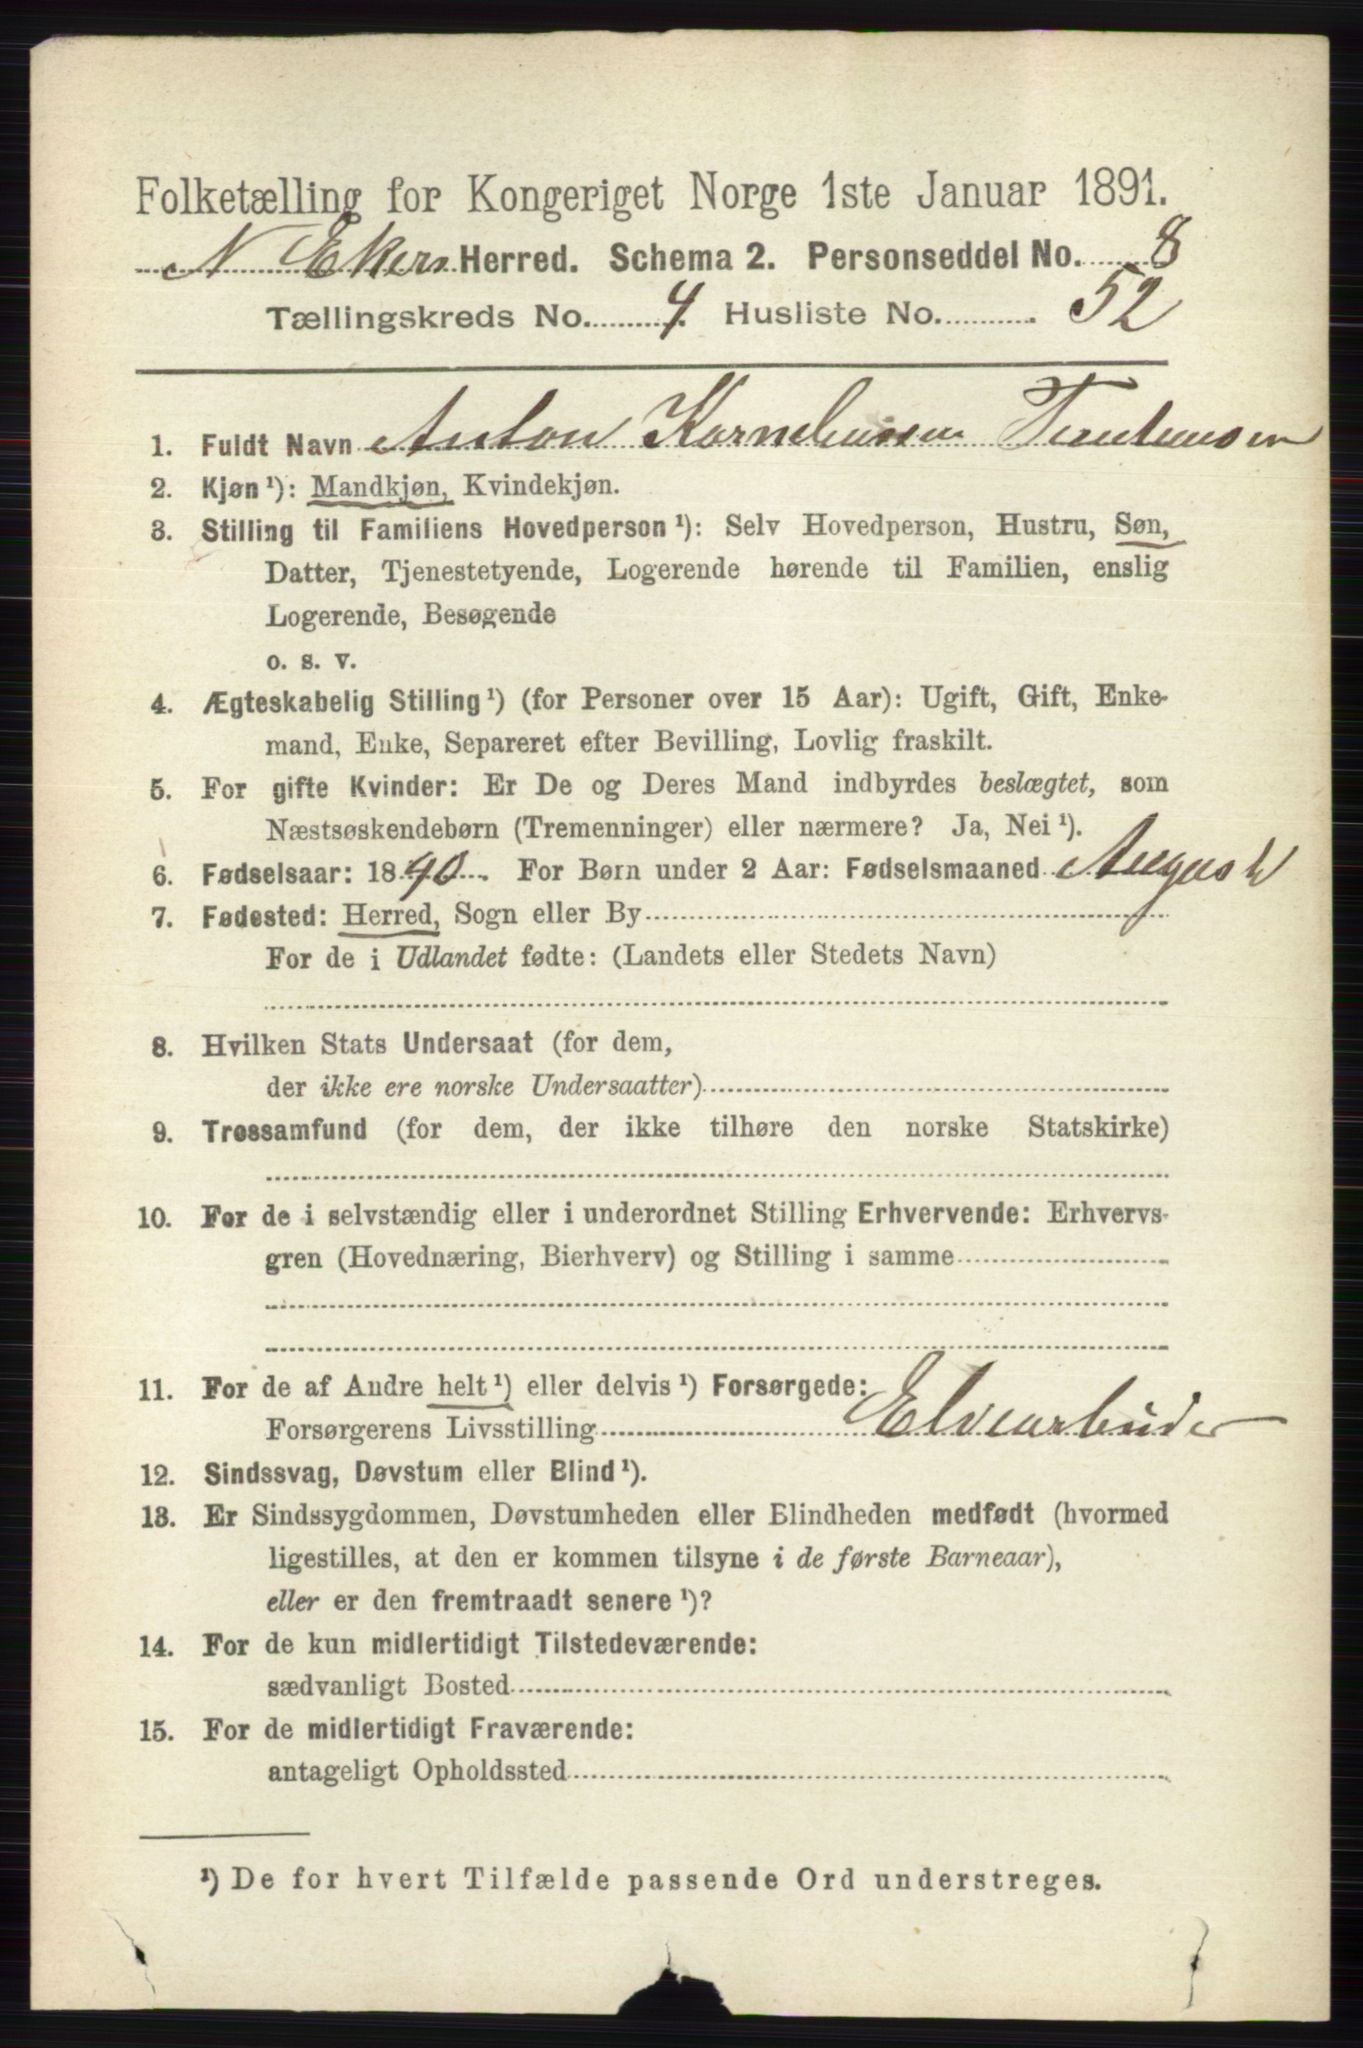 Folketælling for Kongeriget Norge 1ste Januar 1891.
N Ekers Herred. Schema 2. Personseddel No. 8
Tællingskreds No. 4. Husliste No. 52
1. Fuldt Navn Anton Korneliussen
2. Kjøn¹): Mandkjøn, Kvindekjøn.
3. Stilling til Familiens Hovedperson¹): Selv Hovedperson, Hustru, Søn,
Datter, Tjenestetyende, Logerende hørende til Familien, enslig
Logerende, Besøgende
o. s. v.
4. Ægteskabelig Stilling¹) (for Personer over 15 Aar): Ugift, Gift, Enke-
mand, Enke, Separeret efter Bevilling, Lovlig fraskilt.
5. For gifte Kvinder: Er De og Deres Mand indbyrdes beslægtet, som
Næstsøskendebørn (Tremenninger) eller nærmere? Ja, Nei¹).
6. Fødselsaar: 1890. For Børn under 2 Aar: Fødselsmaaned August
7. Fødested: Herred, Sogn eller By
For de i Udlandet fødte: (Landets eller Stedets Navn)
8. Hvilken Stats Undersaat (for dem,
der ikke ere norske Undersaatter)
9. Trossamfund (for dem, der ikke tilhøre den norske Statskirke)
10. For de i selvstændig eller i underordnet Stilling Erhvervende: Erhvervs-
gren (Hovednæring, Bierhverv) og Stilling i samme
11. For de af Andre helt¹) eller delvis¹) Forsørgede:
Forsørgerens Livsstilling Elvearbeider
12. Sindssvag, Døvstum eller Blind¹).
13. Er Sindssygdommen, Døvstumheden eller Blindheden medfødt (hvormed
ligestilles, at den er kommen tilsyne i de første Barneaar),
eller er den fremtraadt senere¹)?
14. For de kun midlertidigt Tilstedeværende:
sædvanligt Bosted
15. For de midlertidigt Fraværende:
antageligt Opholdssted
¹) De for hvert Tilfælde passende Ord understreges.